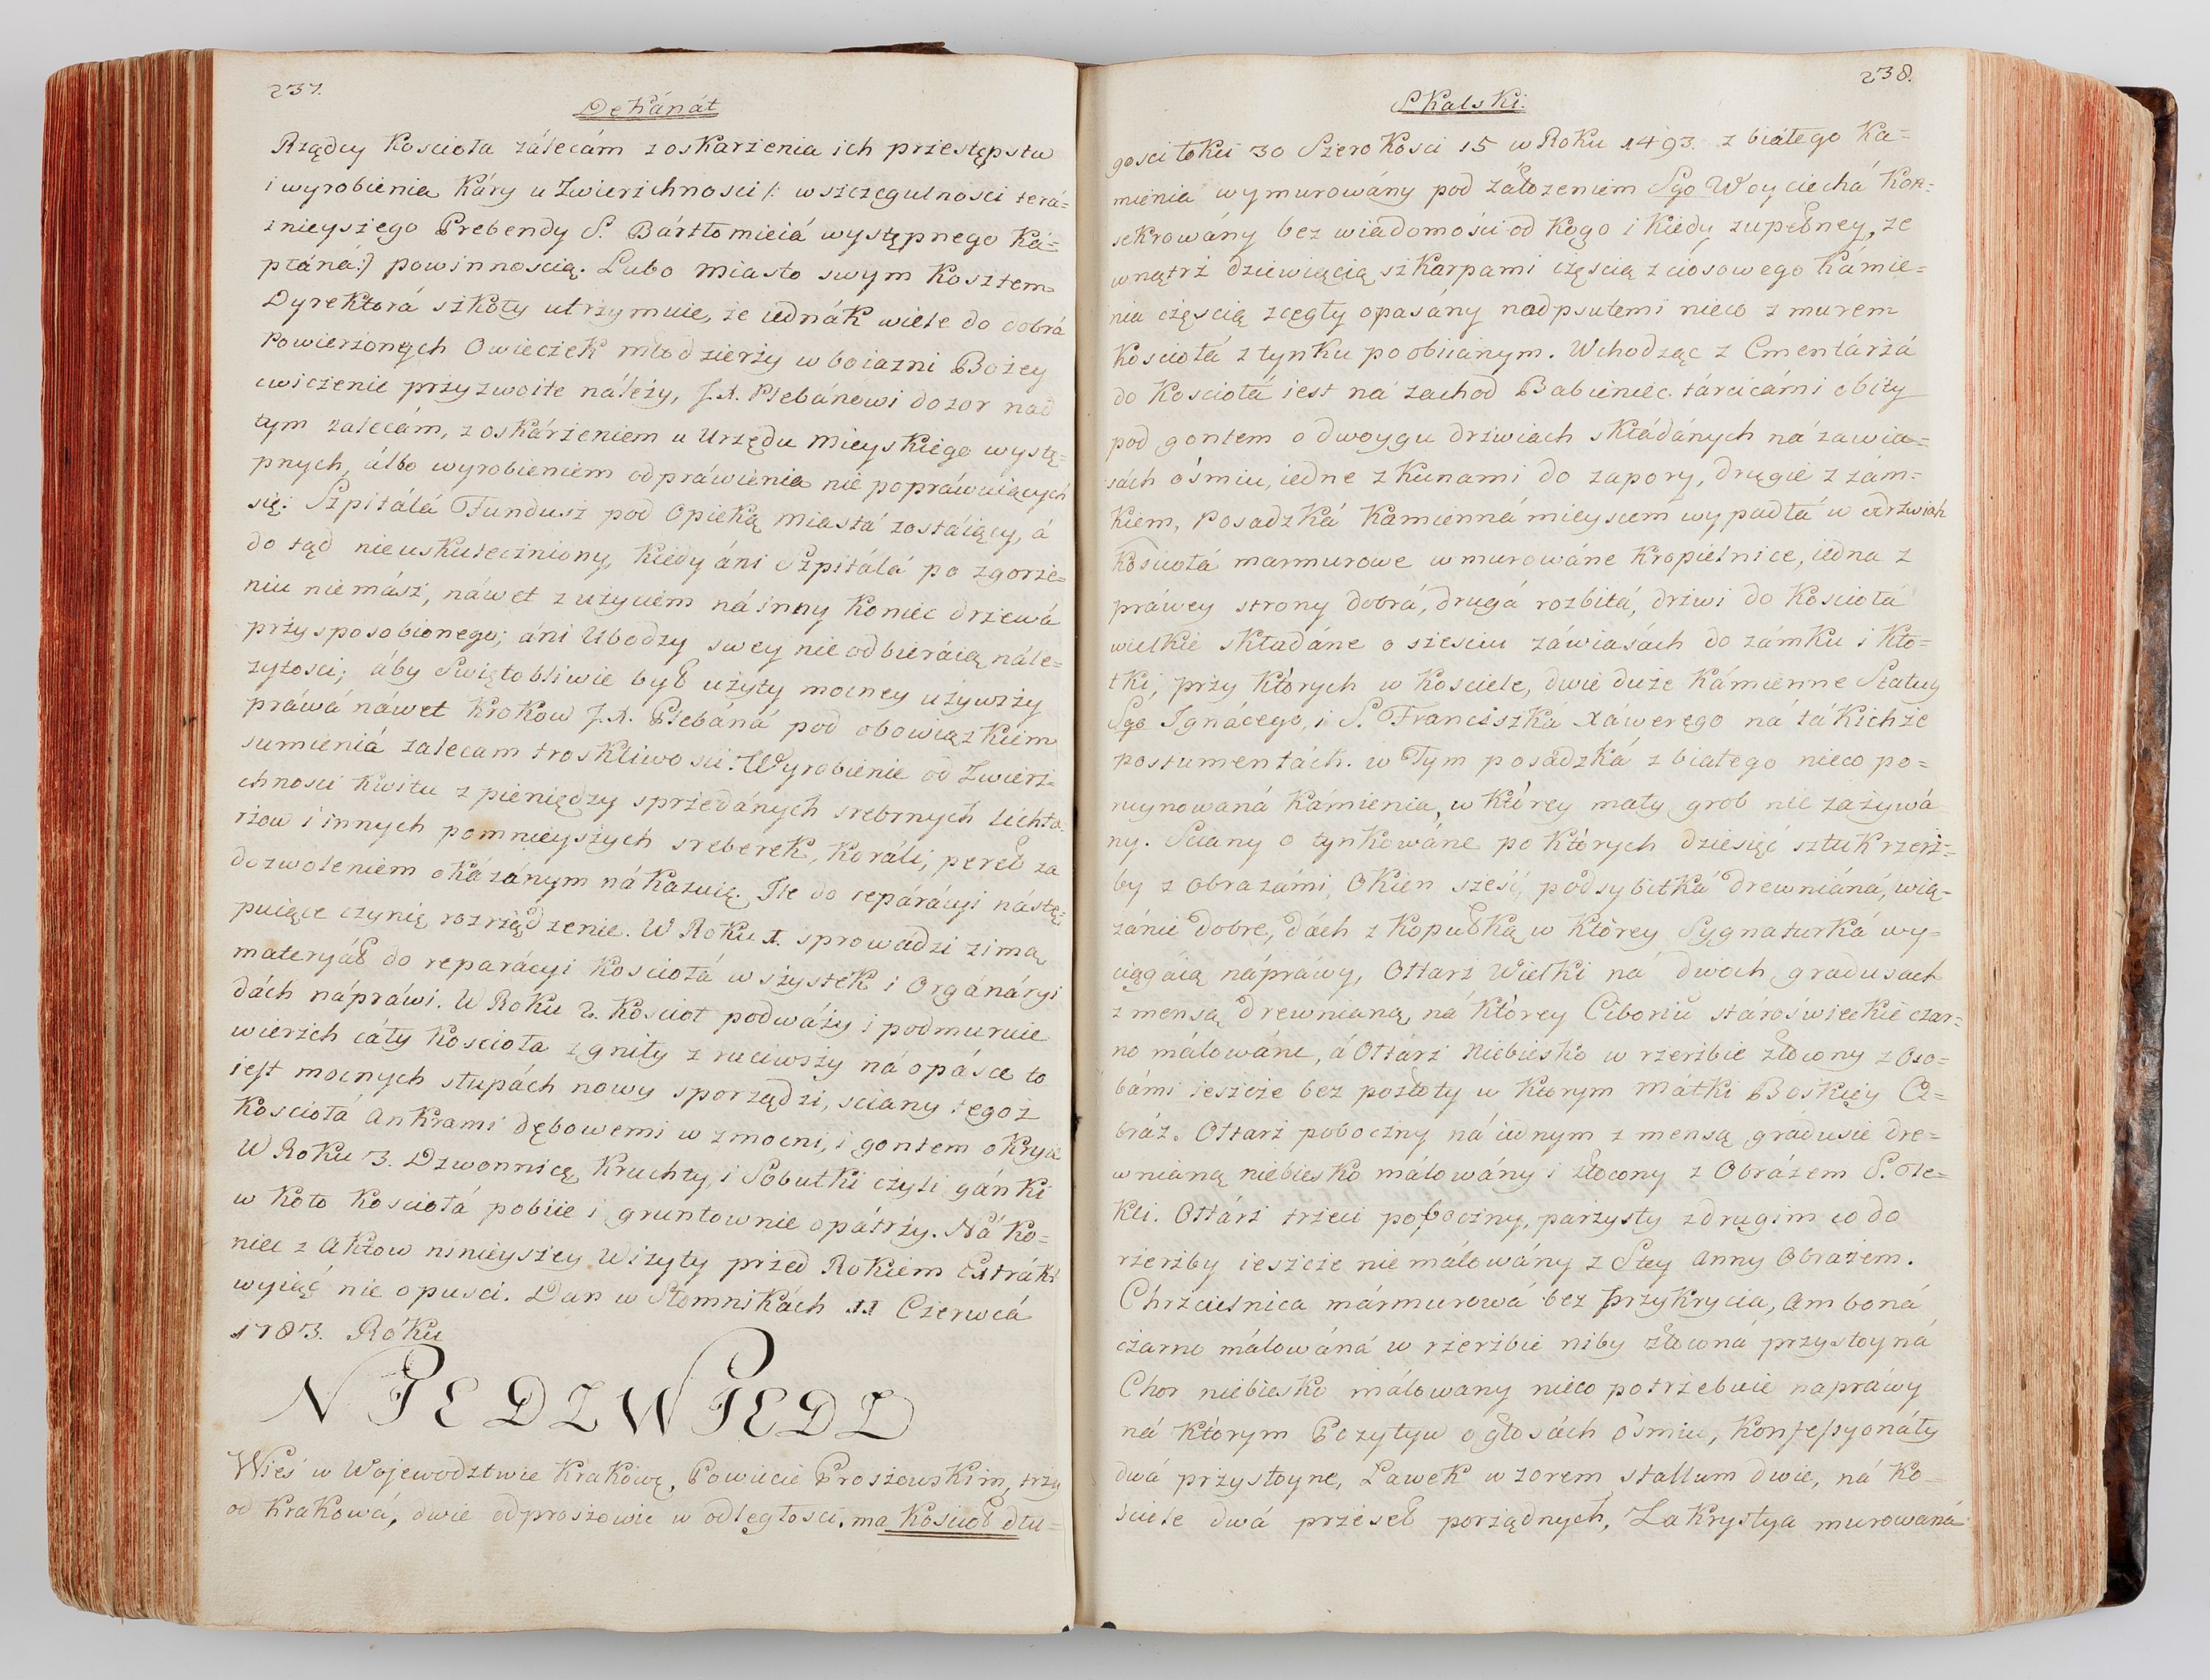 237.
Dekánát
Rządcy Kosciołá zálecám z oskarżenia ich przestępstw
i wyrobienia Káry u Zwierzchnosci /: w szczegulnosci terá=
znieyszego Prebendy S. Bártłomieiá występnego Ká=
płáná:/ powinnoscią. Lubo Miasto swym Kosztem
Dyrektorá szkoły utrzymuie, że iednák wiele do dobrá
Powierzonych Owieczek młodzierzy w boiazni Bożey
cwiczenie przyzwoite náleży, J.X. Plebánowi dozor nad
tym zalecám, z oskárżeniem u Urzędu Mieyskiego wystę=
pnych, álbo wyrobieniem odpráwienia nie popráwuiących
się. Szpitálá Fundusz pod Opieką Miastá zostáiący, á
do tąd nieuskuteczniony, kiedy áni Szpitálá po zgorze=
niu niemász, náwet z użyciem ná inny koniec drzewá
przysposobionego; áni Ubodzy swey nie odbieráią nále=
żytosci; áby Swiętobliwie był użyty mocney używszy
práwá náwet krokow J.X. Plebáná pod obowiązkiem
sumieniá zalecam troskliwosci. Wyrobienie od Zwierz=
chnosci Kwitu z pieniędzy sprzedánych srebrnych lichta=
rzow i innych pomnieyszych sreberek, koráli, pereł za
dozwoleniem okázánym nákazuię. Ile do reparácyi nástę=
puiące czynię rozrządzenie. W Roku 1. sprowadzi zimą
materyáł do reparácyi Kosciołá wszystek i Orgánáryi
dách nápráwi. W Roku 2. Kościoł podwáży i podmuruie
wierzch cáły Kosciołá zgniły zruciwszy ná opásce to
iest mocnych słupách nowy sporządzi, sciany tegoż
Kosciołá Ankrami dębowemi wzmocni, i gontem okryie
W Roku 3. Dzwonnicę, Kruchty, i Sobutki czyli gánki
w koło Kosciołá pobiie i gruntownie opátrzy. Ná ko=
niec z Aktow ninieyszey Wizyty przed Rokiem Extrákt
wyiąć nie opusci. Dan w Słomnikách 11 Czerwcá
1783. Roku
NIEDZWIEDZ
Wieś w Wojewodztwie Krakows, Powiecie Proszowskim, trzy
od Krakowá, dwie od proszowic w odległosci, ma Kosciół dłu=
238.
Skalski.
gosci łokci 30 Szerokosci 15 w Roku 1493. z białego Ka=
mienia wymurowány pod záłozeniem Sgo Woyciechá Kon=
sekrowány bez wiadomości od kogo i kiedy zupełney, ze
wnątrz dziewiącią szkarpami częscią z ciosowego kámie=
nia częscią z cegły opasány nadpsutemi nieco z murem
Kosciołá z tynku poobiianym. Wchodząc z Cmentárżá
do Kosciołá iest ná zachod Babieniec tárcicámi obity
pod gontem o dwoygu drzwiach skłádanych ná zawia=
sách ośmiu, iedne z Kunami do zapory, drugie z zám=
kiem, Posadzká kamienná mieyscem wypadłá w drzwiach
Kosciołá marmurowe wmurowáne kropielnice, iedna z
práwey strony dobrá, drugá rozbitá, drzwi do Kosciołá
wielkie składáne o szesciu záwiasách do zámku i kłó=
tki, przy których w Kosciele, dwie duże kámienne Statuy
Sgo Ignácego, i S. Franciszká Xáwerego ná tákichże
postumentách. w Tym posadzká z białego nieco po=
ruynowaná kámienia, w którey mały grob nie zażywá
ny. Sciany otynkowáne po których dziesięć sztuk rzeź=
by z Obrazámi, Okien sześć, podsybitká drewniáná, wią=
zánie dobre, dách z kopułką w którey Sygnaturká wy=
ciągáią nápráwy, Ołtarz Wielki ná dwoch gradusach
z mensą drewnianą, ná którey Ciboriũ stároświeckie czar=
no málowáne, á Ołtárz Niebiesko w rzeźbie złocony z Oso=
bámi ieszcze bez pozłoty w którym Mátki Boskiey O=
bráz. Ołtarz poboczny ná iednym z mensą grádusie dre=
wnianą niebiesko málowány i złocony z Obrázem S. Te=
kli. Ołtárz trzeci poboczny, parzysty z drugim co do
rzeźby ieszcze nie málowány z Stey Anny Obrazem.
Chrzcielnica mármurowá bez przykrycia, Amboná
czarno málowáná w rzeźbie niby złoconá przystoyná
Chor niebiesko málowany nieco potrzebuie napráwy
ná którym Pozytyw o głosách ośmiu, Konfessyonáły
dwá przystoyne, Ławek wzorem stallum dwie, ná Ko=
sciele dwá przeseł porządnych, Zakrystya murowaná